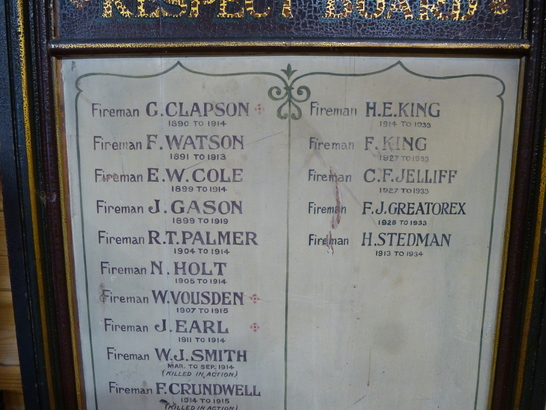 RESPECT BOARD
Fireman G. CLAPSON
1890 TO 1914
Fireman F. WATSON
1891 TO 1913
Fireman E.W. COLE
1899 TO 1914
Fireman J. GASON
1899 TO 1919
Fireman R.T. PALMER
1904 TO 1914
Fireman N. HOLT
1905 TO 1914
Fireman W. VOUSDEN
1907 TO 1915
Fireman J. EARL
1911 TO 1914
Fireman W.J. SMITH
MAR. TO SEP. 1914
(KILLED IN ACTION)
Fireman F. CRUNDWELL
1914 TO 1915
(KILLED IN ACTION)
Fireman H.E. KING
1914 TO 1933
Fireman F. KING
1927 TO 1933
Fireman C.F. JELLIFF
1927 TO 1933
Fireman F.J. GREATOREX
1928 TO 1933
Fireman H. STEDMAN
1913 TO 1934